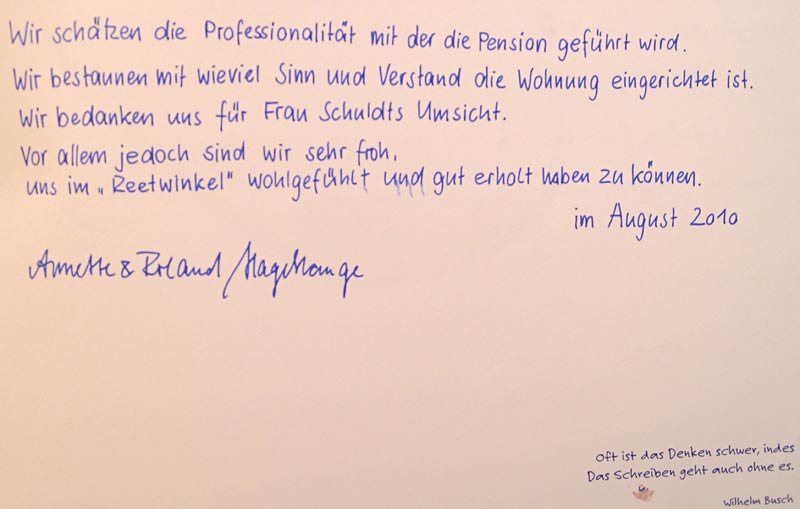 Wir schätzen die Professionalität mit der die Pension geführt wird.
Wir bestaunen mit wieviel Sinn und Verstand die Wohnung eingerichtet ist.
Wir bedanken uns für Frau Schuldts Umsicht.
Vor allem jedoch sind wir sehr froh,
uns im „Reetwinkel" wohlgefühlt und gut erholt haben zu können.
im August 2010
Annette & Roland
Oft ist das Denken schwer, indes
Das Schreiben geht auch ohne es.
Wilhelm Busch